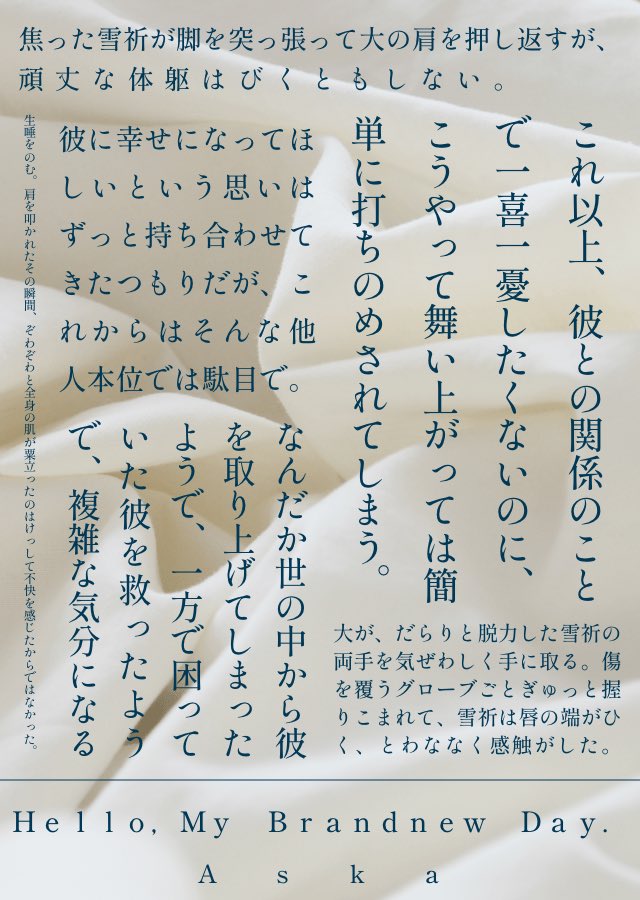 焦った雪祈が脚を突っ張って大の肩を押し返すが、
頑丈な体躯はびくともしない。
これ以上、彼との関係のこと
で一喜一憂したくないのに、
こうやって舞い上がっては簡
単に打ちのめされてしまう。
彼に幸せになってほ
しいという思いは
ずっと持ち合わせて
きたつもりだが、こ
れからはそんな他
人本位では駄目で。
生唾をのむ。肩を叩かれたその瞬間、ぞわぞわと全身の肌が粟立ったのはけっして不快を感じたからではなかった。
なんだか世の中から彼
を取り上げてしまった
ようで、一方で困って
いた彼を救ったよう
で、複雑な気分になる
大が、だらりと脱力した雪祈の
両手を気ぜわしく手に取る。傷
を覆うグローブごとぎゅっと握
りこまれて、雪祈は唇の端がひ
く、とわななく感触がした。
Hello, My Brandnew Day.
Aska